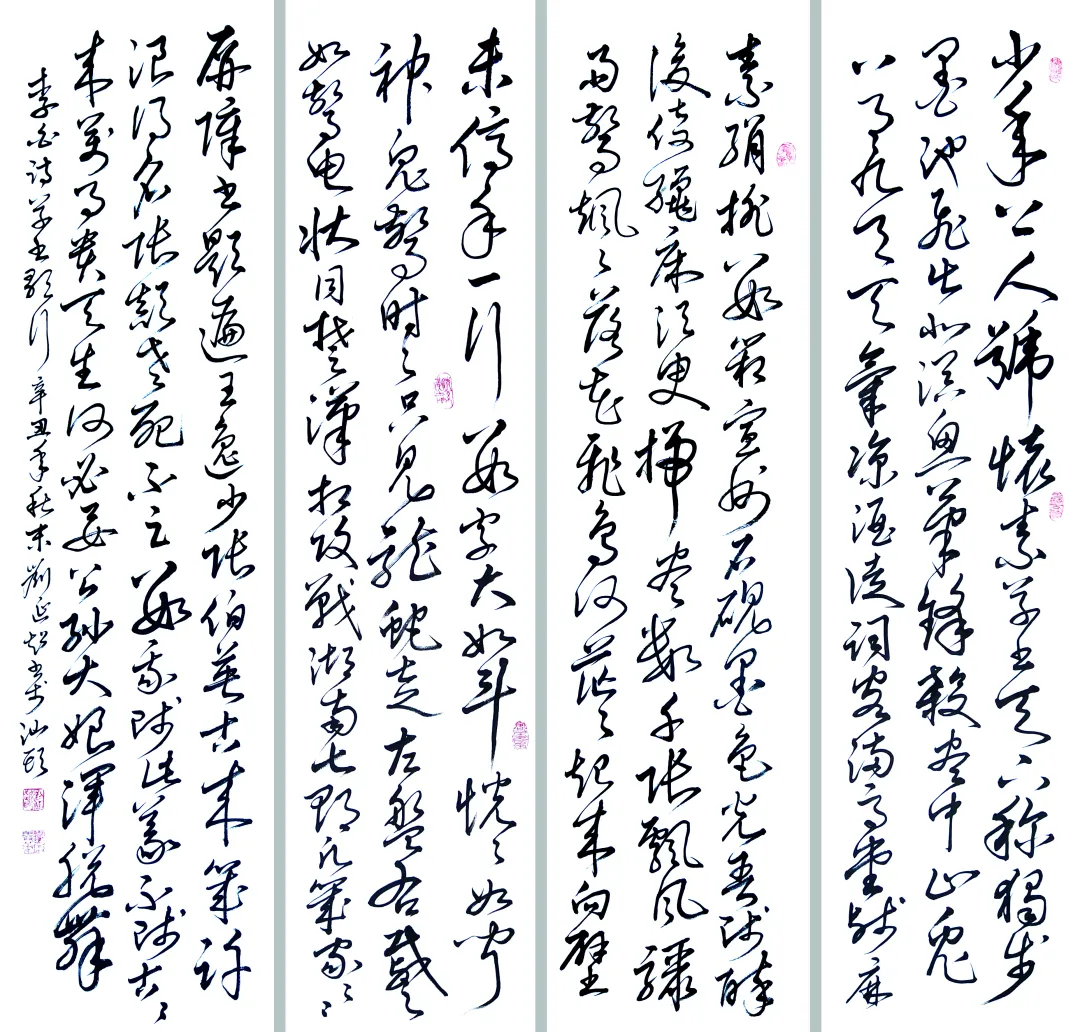 少年上人號懷素草書天下稱獨步
墨池飛出北溟魚筆鋒殺盡中山兔
八月九月天氣涼酒徒詞客滿高堂牋麻
素絹排數箱宣州石硯墨色光吾師醉
後倚繩床須臾掃盡數千張飄風驟
雨驚颯々落花飛雪何茫々起來向壁
未停手一行數字大如斗恍々如聞
神鬼驚時々只見龍蛇走左盤右蹙
如驚電狀同楚漢相攻戰湖南七郡凡幾家々々
屏障書題遍王逸少張伯英古來幾許
浪得名張顛老死不足數我師此義不師古々
來萬事貴天生何必要公孫大娘渾脫舞
李白詩草書歌行 辛丑年秋末劉延超書於汕頭